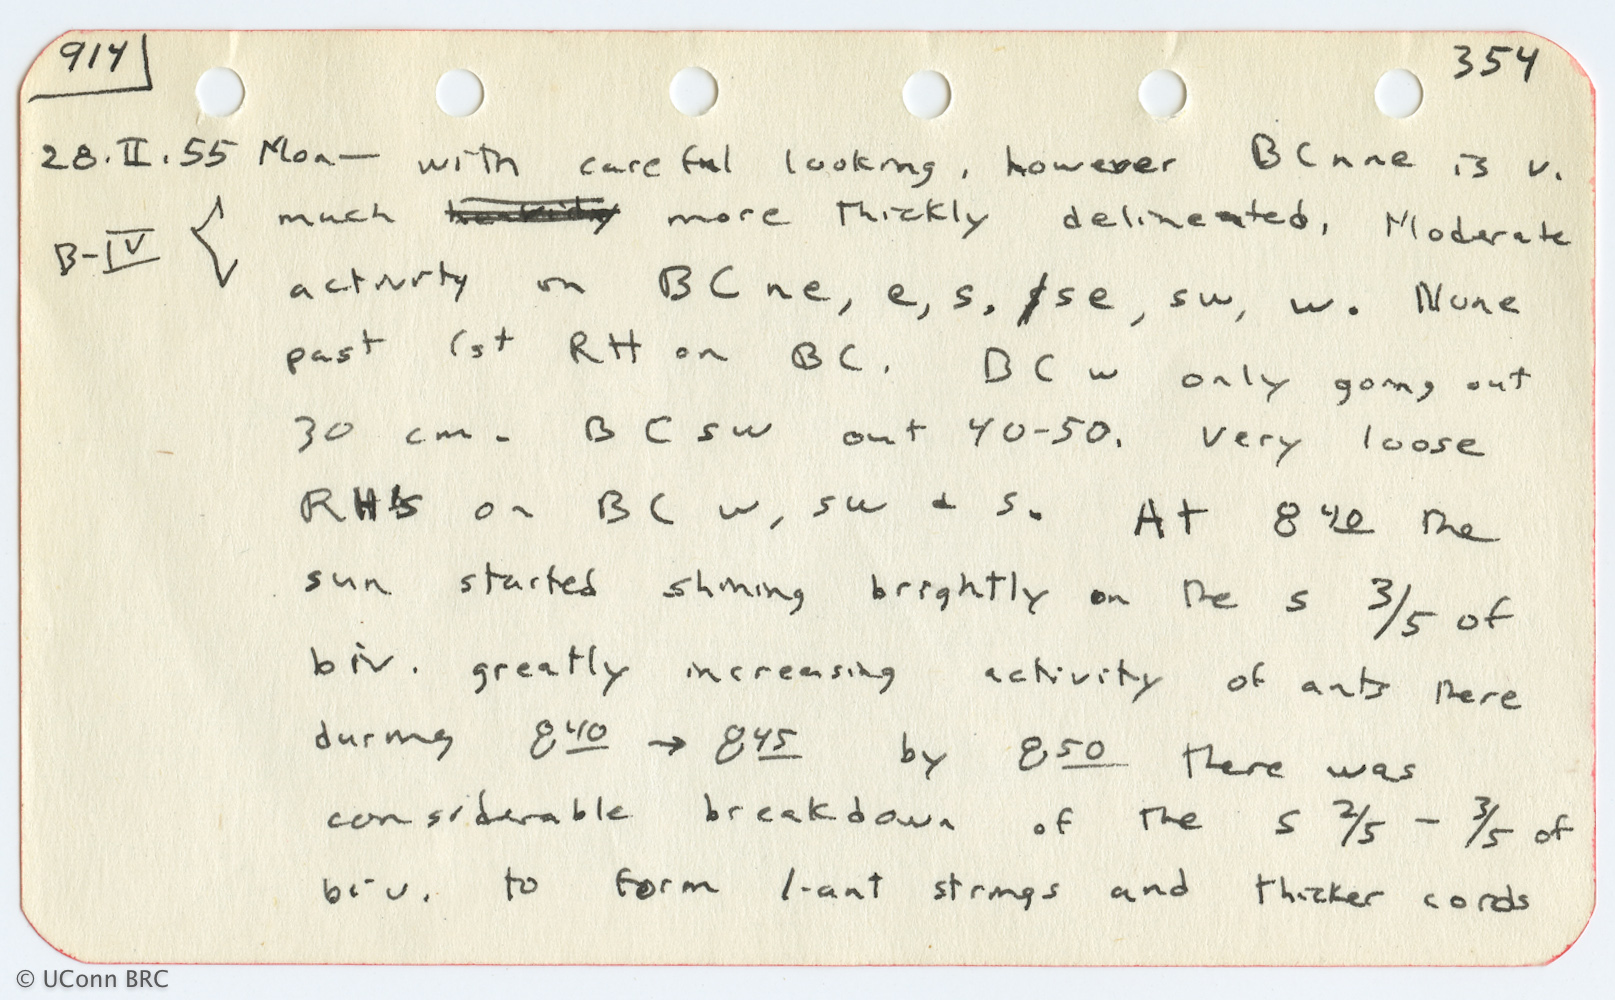 914
354
28.II.55 Mon— with careful looking, however BCnne is v.
B-IV
much more thickly delineated. Moderate
activity on BCne, e, s, se, sw, w. None
past 1st RH on BC. BCw only going out
30 cm. BCsw out 40-50. Very loose
RH's on BC w, sw & s. At 840 the
sun started shining brightly on the s 3/5 of
biv. greatly increasing activity of ants there
during 840 → 845 by 850 there was
considerable breakdown of the s 2/5 - 3/5 of
biv. to form 1-ant strings and thicker cords
© UConn BRC